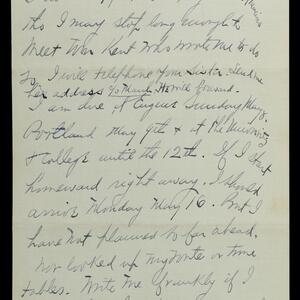 tho I may stop long enough to
Meet Wm Kent who wrote me to do
so I will telephone your Sister. Send me
her address c/o
I am due at Eugene Sunday May 8.
Portland May 9th & at the University
& college until the 12th. If I start
homeward right away, I should
arrive Monday May 16. But I
have not planned so far ahead.
nor looked up my route or time
tables. Write me frankly if I